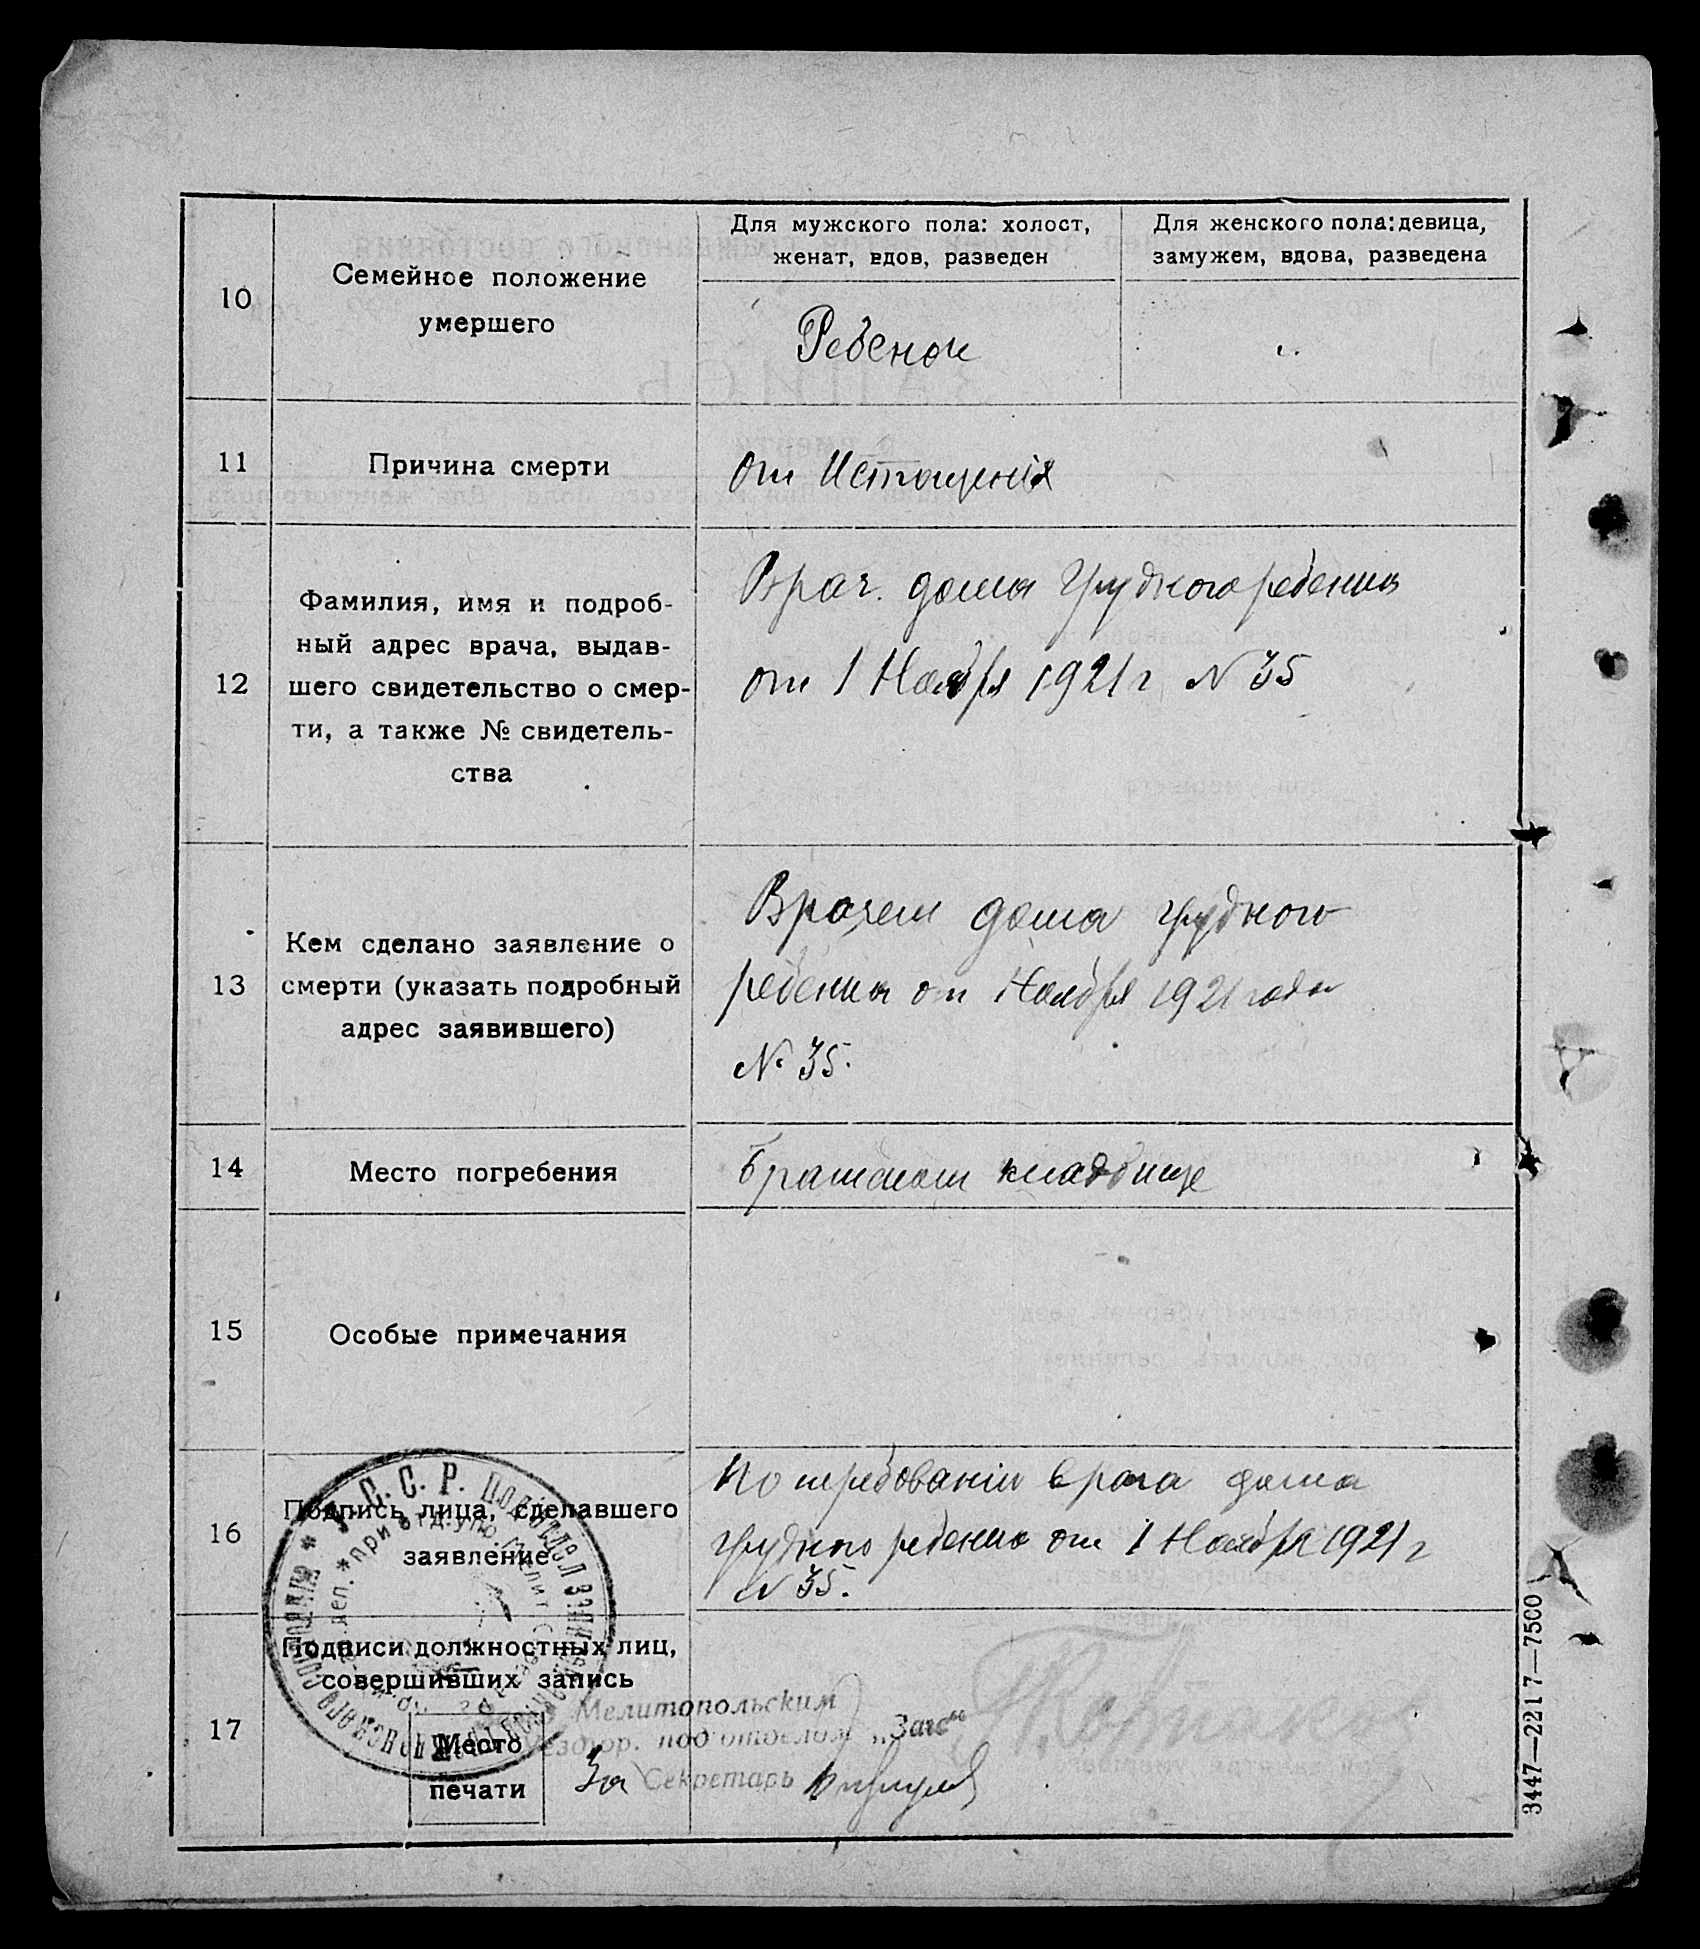 10
Семейное положение
умершего
Для мужского пола: холост,
женат, вдов, разведен
Для женского пола: девица,
замужем, вдова, разведена
Ребенок
11
Причина смерти
от Истощенія
12
Фамилия, имя и подроб-
ный адрес врача, выдав-
шего свидетельство о смер-
ти, а также № свидетель-
ства
Врач. дома Грудного ребенка
от 1 Ноября 1921 г N 35
13
Кем сделано заявление о
смерти (указать подробный
адрес заявившего)
Врачем дома грудного
ребенка от 1 Ноября 1921 года
№ 35.
14
Место погребения
Братском кладбище
15
Особые примечания
16
Подпись лица, сделавшего
заявление
По требованію врача дома
грудного ребенка от 1 Ноября 1921 г
N 35.
17
Подписи должностных лиц,
совершивших запись
Место
печати
Мелитопольским
под отделом „Загс"
За Секретарь
3447—2217—7500